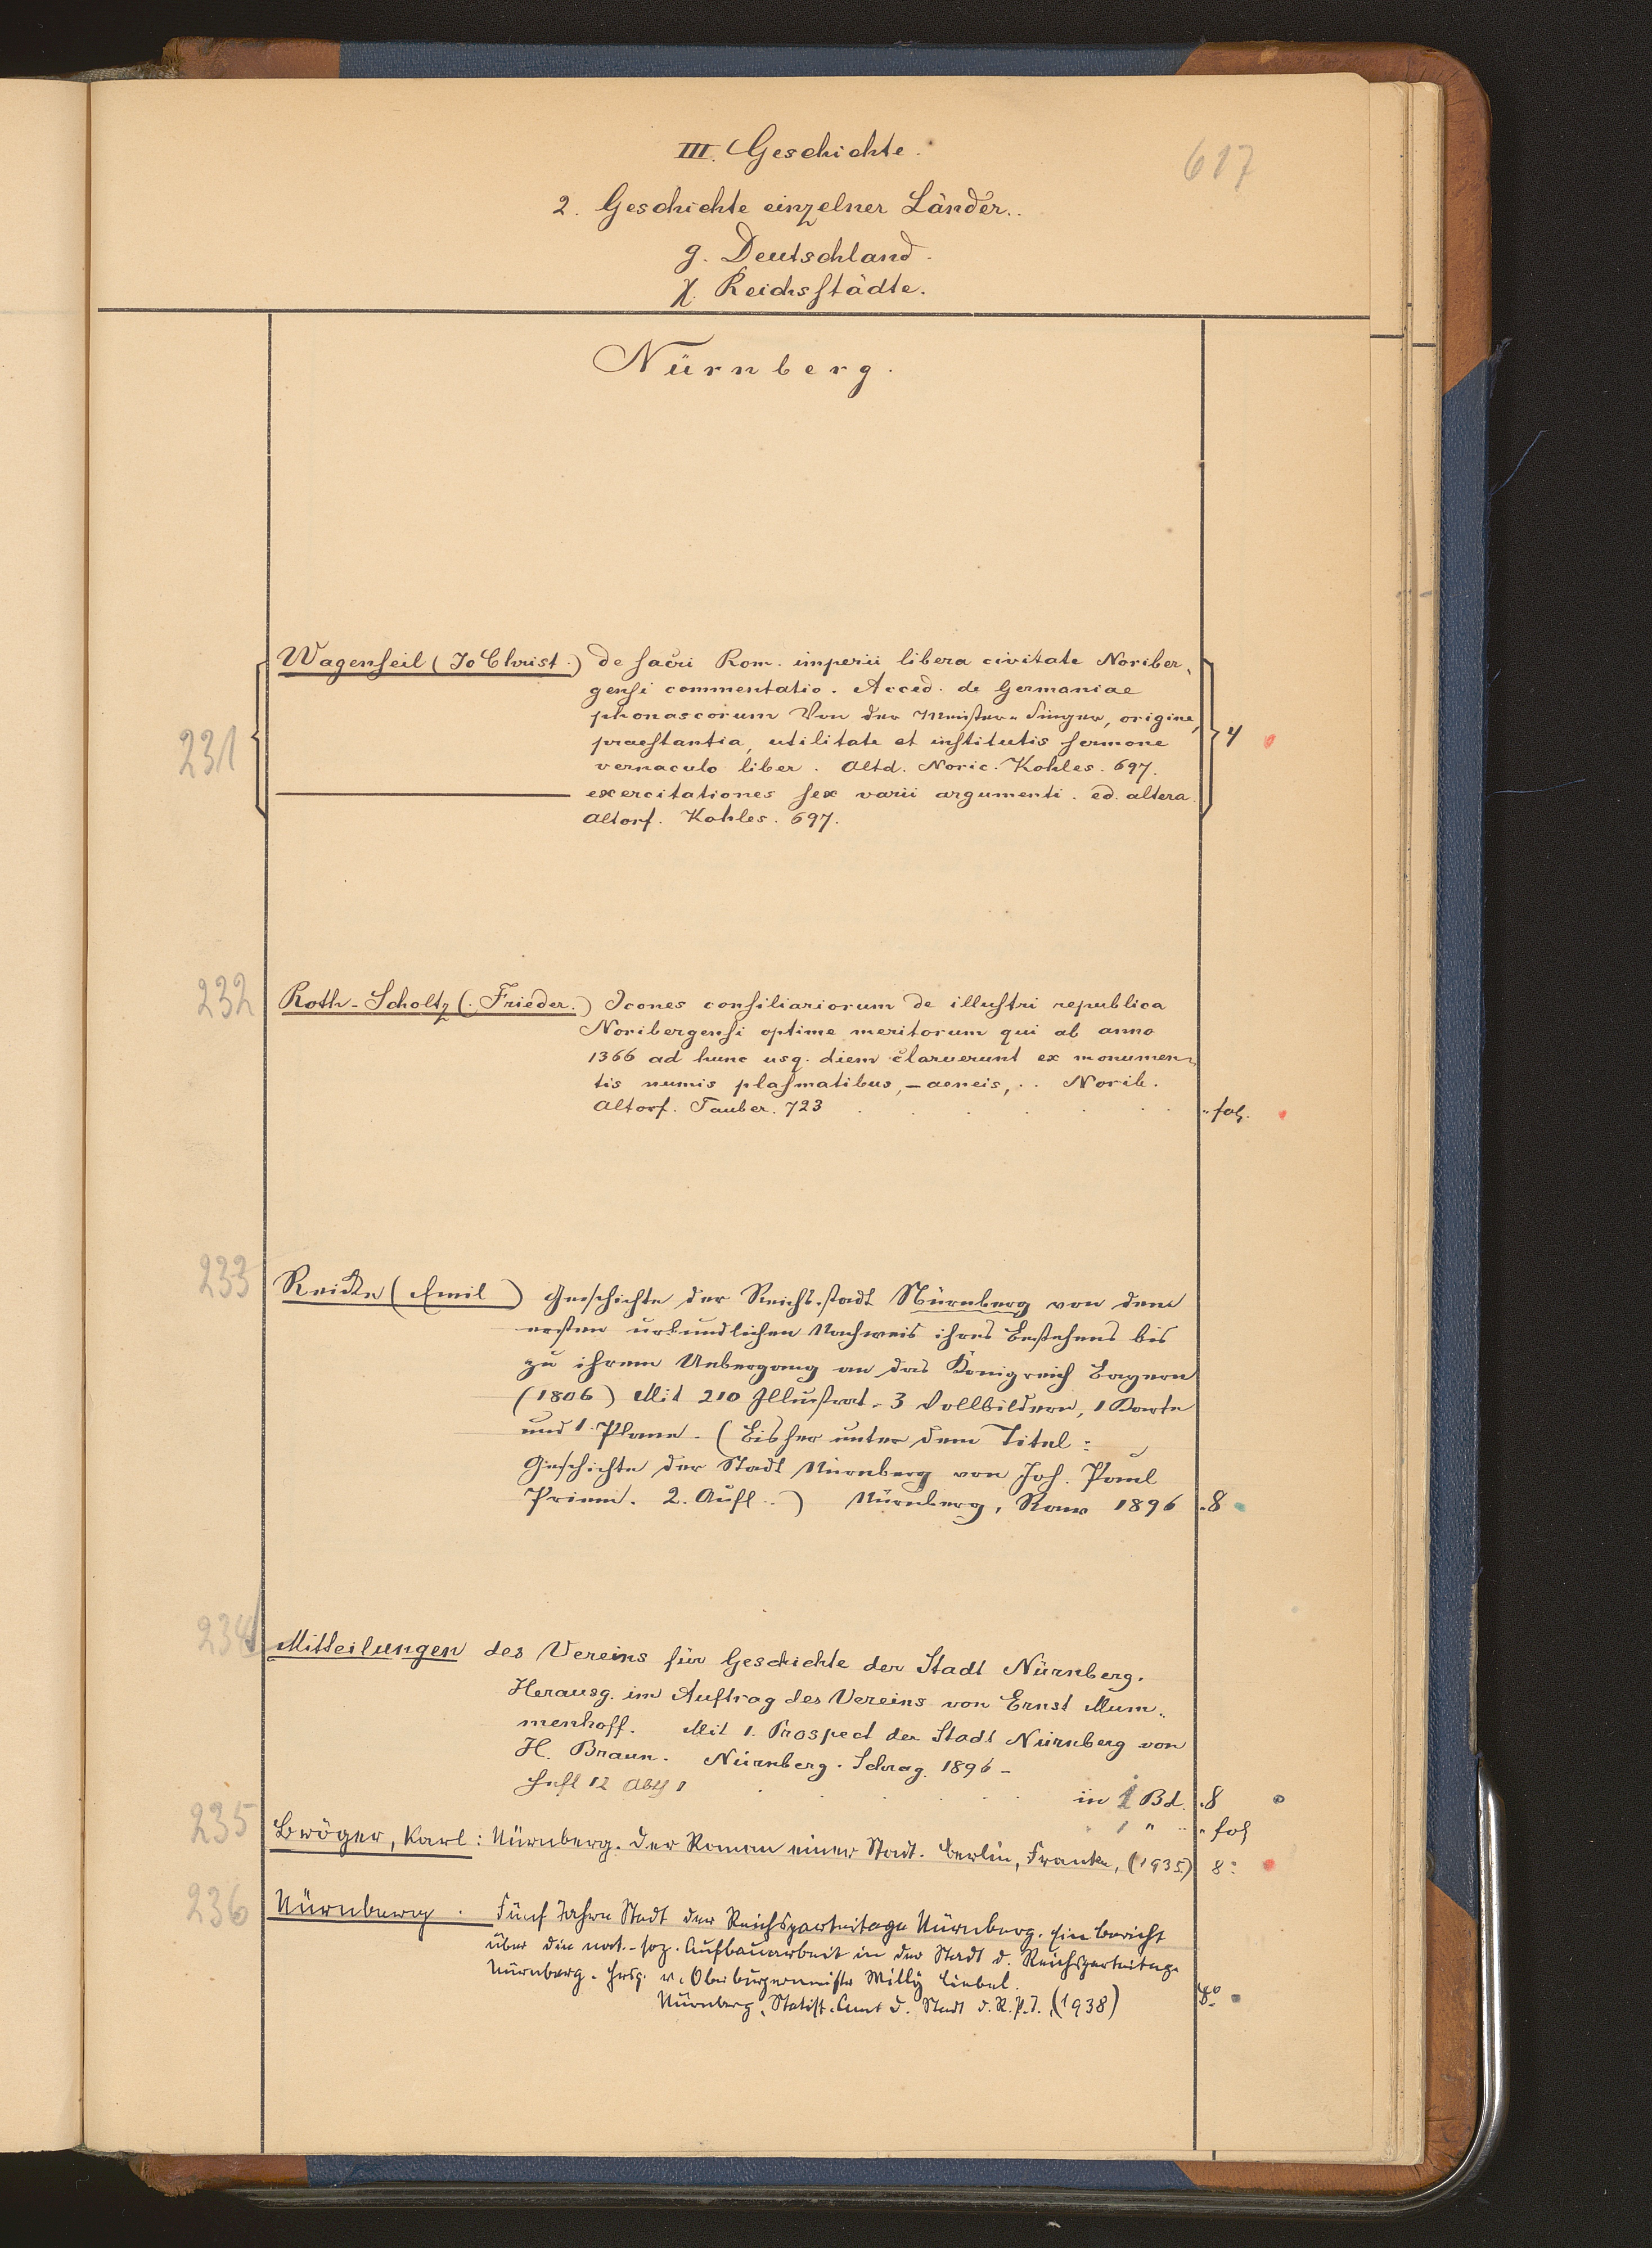 III. Geschichte.
617
2. Geschichte einzelner Länder.
g. Deutschland.
χ. Reichsstädte.
Nürnberg.
Wagenseil (Jo Christ.) de sacri Rom. imperii libera civitate Noriber-
gensi commentatio. Acced. de Germaniae
phonascorum Von der Meister-Singer, origine,
231
praestantia, utilitate et institutis sermone
4
vernaculo liber. Altd. Noric. Kohles. 697.
——— exercitationes sex varii argumenti. ed. altera.
Altorf. Kohles. 697.
232
Roth-Scholtz (Frieder.) Icones consiliariorum de illustri republica
Noribergensi optime meritorum qui ab anno
1366 ad hunc usq. diem claruerunt ex monumen-
tis numis plasmatibus, – aeneis, .. Norib.
Altorf. Tauber. 723 . . . . . . fol.
233
Reicke (Emil) Geschichte der Reichsstadt Nürnberg von dem
ersten urkundlichen Nachweis ihres Bestehens bis
zu ihrem Uebergang an das Königreich Bayern
(1806) Mit 210 Illustrat. 3 Vollbildern, 1 Karte
und 1 Plane. (Bisher unter dem Titel:
Geschichte der Stadt Nürnberg von Joh. Paul
Priem. 2. Aufl..) Nürnberg, Raw 1896 . 8
234
Mitteilungen des Vereins für Geschichte der Stadt Nürnberg.
Herausg. im Auftrag des Vereins von Ernst Mum-
menhoff. Mit 1. Prospect der Stadt Nürnberg von
H. Braun. Nürnberg. Schrag. 1896 –
Heft 12 Abt 1 . . . . . in 1 Bd. . 8
1 " .. fol
235
Bröger, Karl: Nürnberg. Der Roman einer Stadt. Berlin, Franke, (1935.) 8°
236
Nürnberg. Fünf Jahre Stadt der Reichsparteitage Nürnberg. Ein Bericht
über die nat.-soz. Aufbauarbeit in der Stadt d. Reichsparteitage
Nürnberg. Hrsg. v. Oberbürgermeister Willy Liebel.
Nürnberg, Statist. Amt d. Stadt d. R.P.T. (1938) 8°